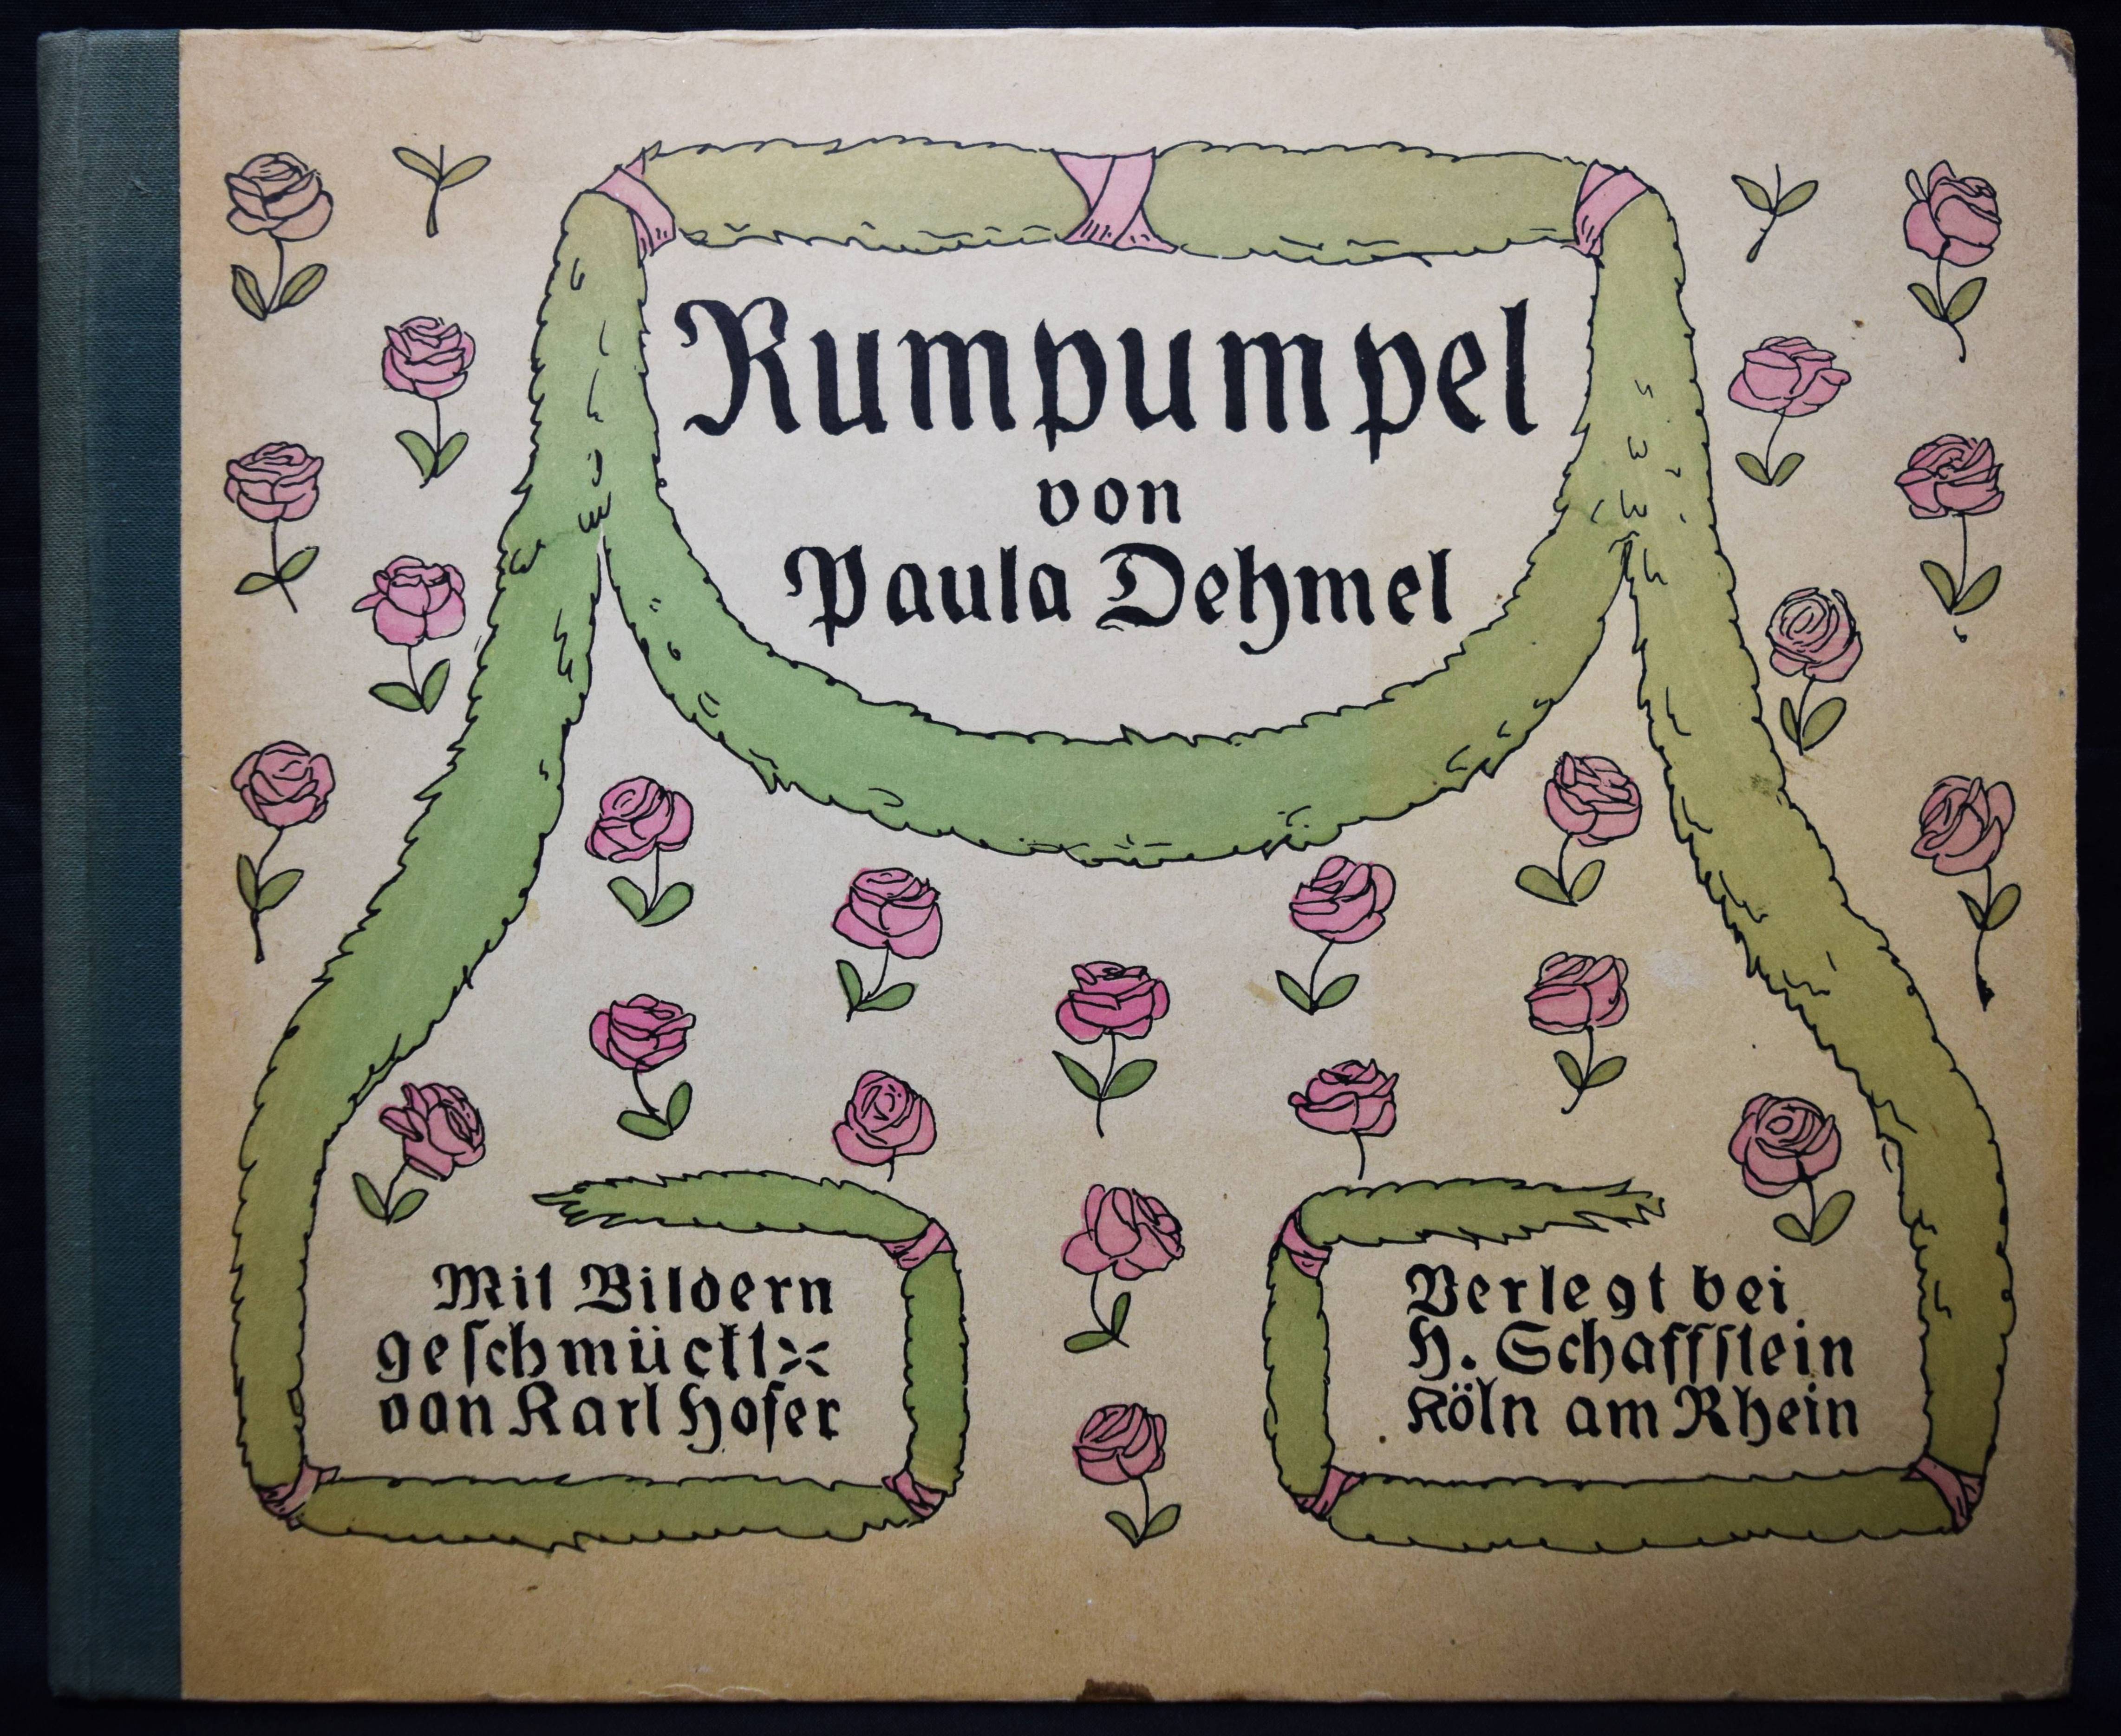 Rumpumpel
von
Paula Dehmel
Mit Bildern
geſchmückt
von Karl Hofer
Verlegt bei
H. Schaffſtein
Köln am Rhein